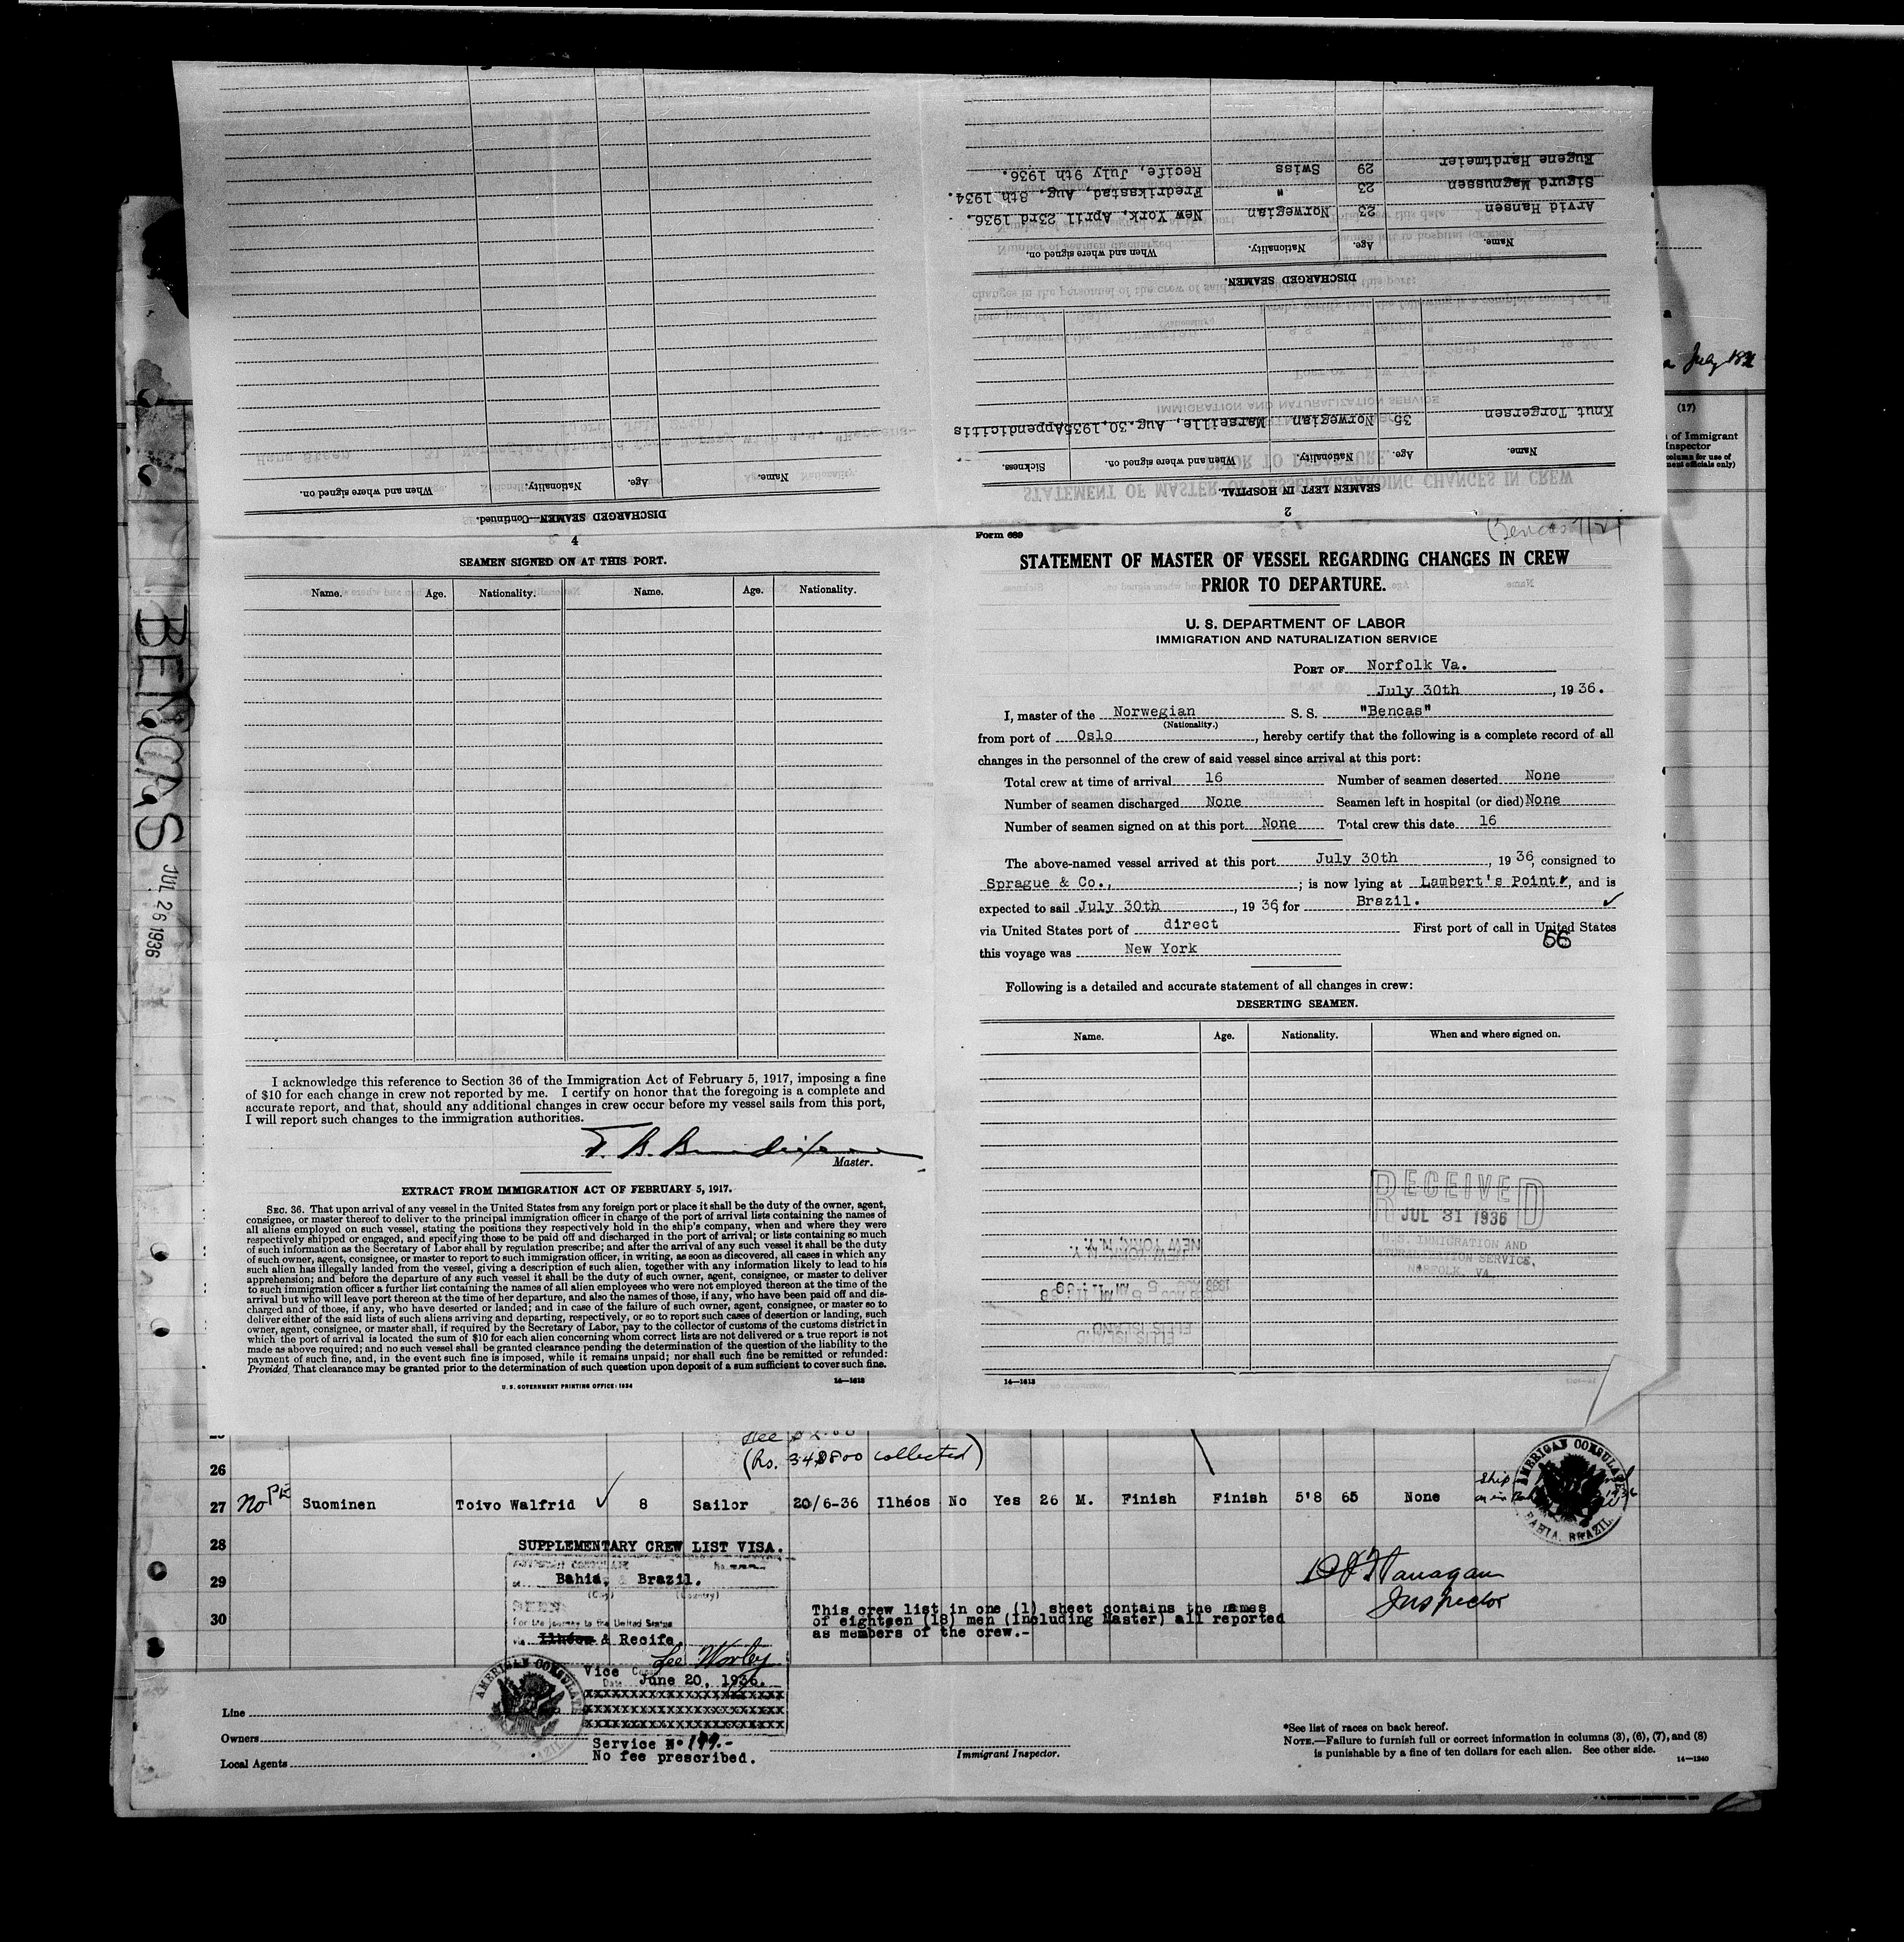 Eugene Hardtmeier 29 Swiss Recife, July 9th 1936.
Sigurd Magnussen 23 " Fredriksstad, Aug. 8th 1934.
Arvid Hansen 23 Norwegian New York, April 23rd 1936.
Name. Age. Nationality. When and where signed on.
DISCHARGED SEAMEN.
Knut Torgersen 35 Norwegian Marseille, Aug.30.1935 Appendicitis
Name. Age. Nationality. When and where signed on. Sickness.
SEAMEN LEFT IN HOSPITAL.
2
Name. Age. Nationality. When and where signed on.
DISCHARGED SEAMEN—Continued.
4
SEAMEN SIGNED ON AT THIS PORT.
Name. Age. Nationality. Name. Age. Nationality.
I acknowledge this reference to Section 36 of the Immigration Act of February 5, 1917, imposing a fine
of $10 for each change in crew not reported by me. I certify on honor that the foregoing is a complete and
accurate report, and that, should any additional changes in crew occur before my vessel sails from this port,
I will report such changes to the immigration authorities.
Master.
EXTRACT FROM IMMIGRATION ACT OF FEBRUARY 5, 1917.
SEC. 36. That upon arrival of any vessel in the United States from any foreign port or place it shall be the duty of the owner, agent,
consignee, or master thereof to deliver to the principal immigration officer in charge of the port of arrival lists containing the names of
all aliens employed on such vessel, stating the positions they respectively hold in the ship's company, when and where they were
respectively shipped or engaged, and specifying those to be paid off and discharged in the port of arrival; or lists containing so much
of such information as the Secretary of Labor shall by regulation prescribe; and after the arrival of any such vessel it shall be the duty
of such owner, agent, consignee, or master to report to such immigration officer, in writing, as soon as discovered, all cases in which any
such alien has illegally landed from the vessel, giving a description of such alien, together with any information likely to lead to his
apprehension; and before the departure of any such vessel it shall be the duty of such owner, agent, consignee, or master to deliver
to such immigration officer a further list containing the names of all alien employees who were not employed thereon at the time of the
arrival but who will leave port thereon at the time of her departure, and also the names of those, if any, who have been paid off and dis-
charged and of those, if any, who have deserted or landed; and in case of the failure of such owner, agent, consignee, or master so to
deliver either of the said lists of such aliens arriving and departing, respectively, or so to report such cases of desertion or landing, such
owner, agent, consignee, or master shall, if required by the Secretary of Labor, pay to the collector of customs of the customs district in
which the port of arrival is located the sum of $10 for each alien concerning whom correct lists are not delivered or a true report is not
made as above required; and no such vessel shall be granted clearance pending the determination of the question of the liability to the
payment of such fine, and, in the event such fine is imposed, while it remains unpaid; nor shall such fine be remitted or refunded:
Provided, That clearance may be granted prior to the determination of such question upon deposit of a sum sufficient to cover such fine.
U. S. GOVERNMENT PRINTING OFFICE: 1934 14—1613
Form 689
Bencas
STATEMENT OF MASTER OF VESSEL REGARDING CHANGES IN CREW
PRIOR TO DEPARTURE.
U. S. DEPARTMENT OF LABOR
IMMIGRATION AND NATURALIZATION SERVICE
PORT OF Norfolk Va.
July 30th, 1936.
I, master of the Norwegian S. S. "Bencas"
(Nationality.)
from port of Oslo, hereby certify that the following is a complete record of all
changes in the personnel of the crew of said vessel since arrival at this port:
Total crew at time of arrival 16 Number of seamen deserted None
Number of seamen discharged None Seamen left in hospital (or died) None
Number of seamen signed on at this port None Total crew this date 16
The above-named vessel arrived at this port July 30th, 1936, consigned to
Sprague & Co., ; is now lying at Lambert's Point, and is
expected to sail July 30th, 1936, for Brazil.
via United States port of direct First port of call in United States
56
this voyage was New York
Following is a detailed and accurate statement of all changes in crew:
DESERTING SEAMEN.
Name. Age. Nationality. When and where signed on.
RECEIVED
JUL 31 1936
U.S. IMMIGRATION AND
NATURALIZATION SERVICE,
NORFOLK, VA.
NEW YORK, N. Y.
ELLIS ISLAND
14—1613
BENCAS
JUL 26 1936
July
(17)
of Immigrant
Inspector
26
(Rs. collected)
27 No Suominen Toivo Walfrid 8 Sailor 20/6-36 Ilhéos No Yes 26 M. Finish Finish 5'8 65 None
AMERICAN CONSULATE
BAHIA, BRAZIL.
28
SUPPLEMENTARY CREW LIST VISA.
29
Bahia, Brazil.
(City) (Country)
SEEN
For the journey to the United States
via Ilhéos & Recife.
30
This crew list in one (1) sheet contains the names
of eighteen (18) men (Including Master) all reported
as members of the crew.-
Flanagan
Inspector
Lee Worley
Vice Consul
Date June 20, 1936.
AMERICAN CONSULATE
XXXXXXXXXXXXXXXXXXXXXXX
XXXXXXXXXXXXXXXXXXXXXXX
XXXXXXXXXXXXXXXXXXXXXXX
Service No 199.-
No fee prescribed.
Line
Owners
Local Agents
Immigrant Inspector.
*See list of races on back hereof.
NOTE.—Failure to furnish full or correct information in columns (3), (6), (7), and (8)
is punishable by a fine of ten dollars for each alien. See other side.
14—1240